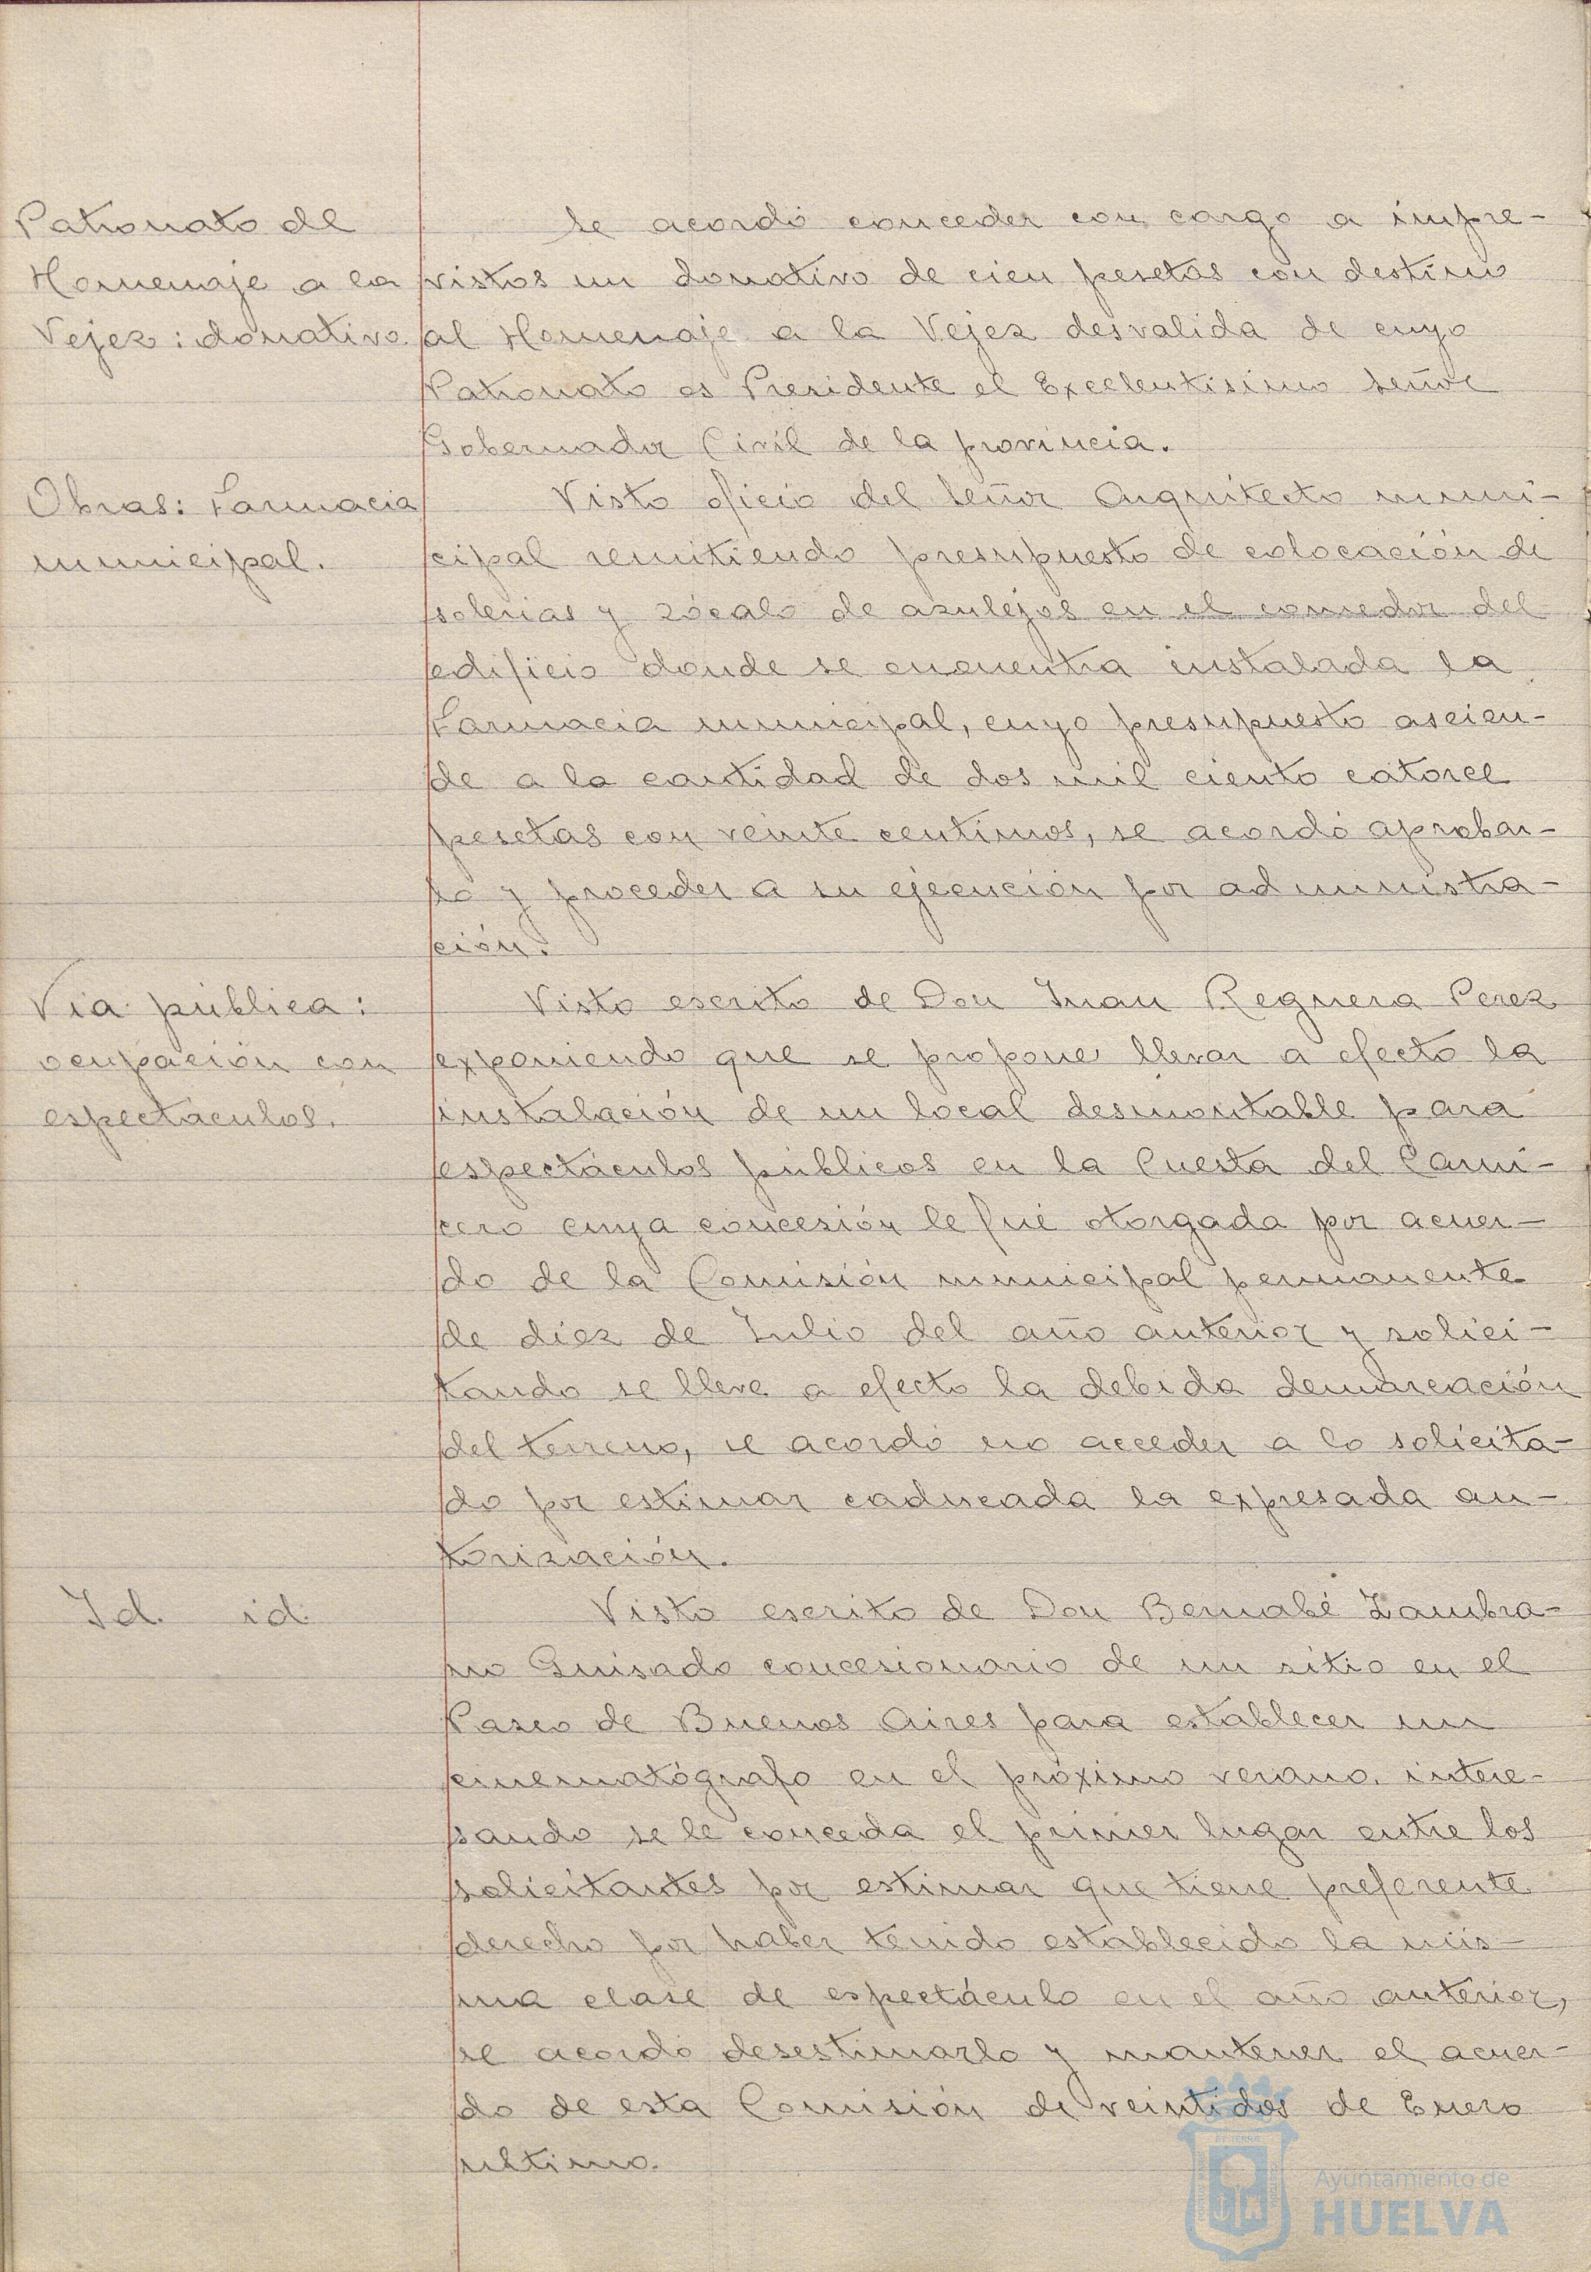 Patronato de
Homenaje a la
Vejez: donativo.
Se acordó conceder con cargo a impre-
vistos un donativo de cien pesetas con destino
al Homenaje a la Vejez desvalida de cuyo
Patronato es Presidente el Excelentísimo Señor
Gobernador Civil de la provincia.
Obras: Farmacia
municipal.
Visto oficio del Señor Arquitecto muni-
cipal remitiendo presupuesto de colocación de
solerias y zócalo de azulejos en el comedor del
edificio donde se encuentra instalada la
Farmacia municipal, cuyo presupuesto ascien-
de a la cantidad de dos mil ciento catorce
pesetas con veinte centimos, se acordó aprobar-
lo y proceder a su ejecución por administra-
ción.
Via pública:
ocupación con
espectaculos.
Visto escrito de Don Juan Reguera Perez
exponiendo que se propone llevar a efecto la
instalación de un local desmontable para
espectáculos públicos en la Cuesta del Carni-
cero cuya concesión le fué otorgada por acuer-
do de la Comisión municipal permanente
de diez de Julio del año anterior y solici-
tando se lleve a efecto la debida demarcación
del terreno, se acordó no acceder a lo solicita-
do por estimar caducada la expresada au-
torización.
Id. id.
Visto escrito de Don Bernabé Zambra-
no Guisado concesionario de un sitio en el
Paseo de Buenos Aires para establecer un
cinematógrafo en el próximo verano. intere-
sando se le conceda el primer lugar entre los
solicitantes por estimar que tiene preferente
derecho por haber tenido establecido la mis-
ma clase de espectáculo en el año anterior,
se acordó desestimarlo y mantener el acuer-
do de esta Comisión de veintidos de Enero
ultimo.
Ayuntamiento de
HUELVA